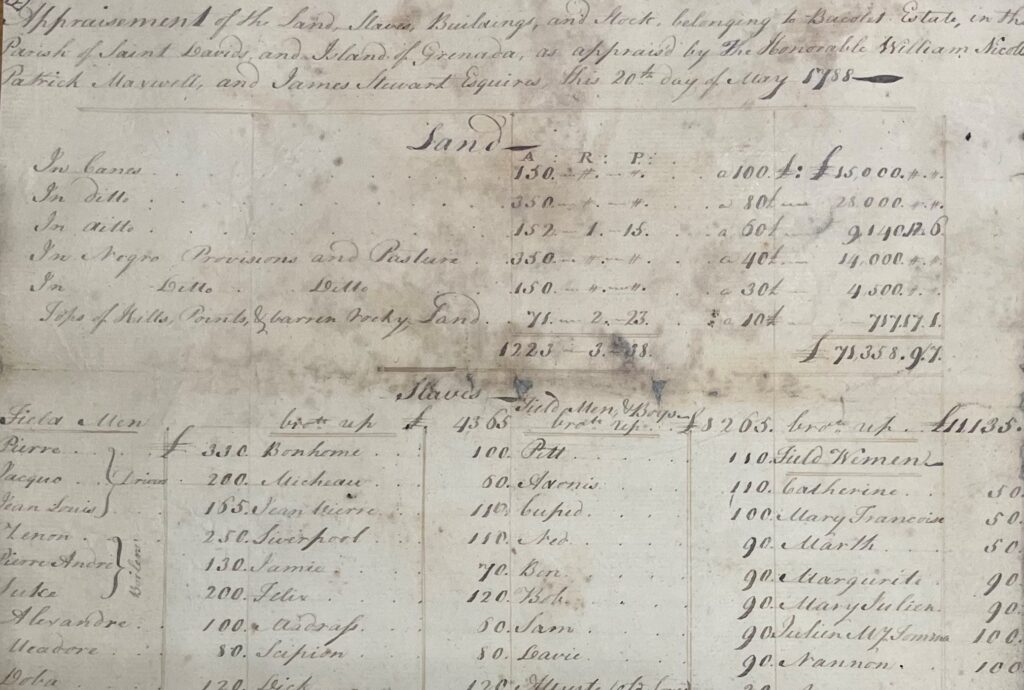 Appraisement of the Land, Slaves, Buildings, and Stock, belonging to Bacolet Estate, in the
Parish of Saint Davids, and Island of Grenada, as appraised by the Honorable William Nicoll
Patrick Maxwell, and James Stewart Esquires, this 20th day of May 1788
Land
A : R : P :
In Canes 150 - " - " . a 100 £ : £ 15,000. " . "
In ditto 350 - " - " . a 80 £ 28,000. " . "
In ditto 152 - 1 - 15. a 60 £ 9,140.12.6
In Negro Provisions and Pasture 350 - " - " . a 40 £ 14,000. " . "
In Ditto Ditto 150 - " - " . a 30 £ 4,500. " . "
Tops of Hills, Points, & barren rocky Land 71 - 2 - 23. a 10 £ 717.17.1
1223 - 3 - 38. £ 71,358.9.7
Slaves
Field Men brot. up £ 4365 Field Men, & Boys brot. up £ 8265. brot. up £ 11135.
Pierre £ 330. Bonhome 100. Pitt 110. Field Wemen
Jacquo Drivers 200. Micheau 60. Adonis 110. Catherine 50
Jean Louis 165. Jean Pierre 110. Cupid 100. Mary Francoise 50
Zenon 250. Liverpool 110. Ned 90. Marth 50
Pierre André 130. Jamie 70. Ben 90. Margurite 90
Luke 200. Felix 120. Bob 90. Mary Julien 90
Alexandre 100. Madrass 60. Sam 90. Julien 100
80. Scipion 80. Davie 90. Nannon 100
120. Dick 120.